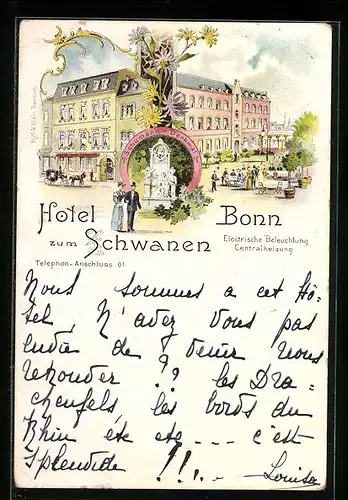 Schumann-Denkmal
Hotel Bonn
zum Schwanen
Electrische Beleuchtung
Centralheizung
Telephon-Anschluss 61.
Nous sommes a cet Hô-
tel, N'avez vous pas
envie de venir nous
?? les Dra-
chenfels, les bords du
Rhin etc etc--- c'est
splendide !!.. Louisa